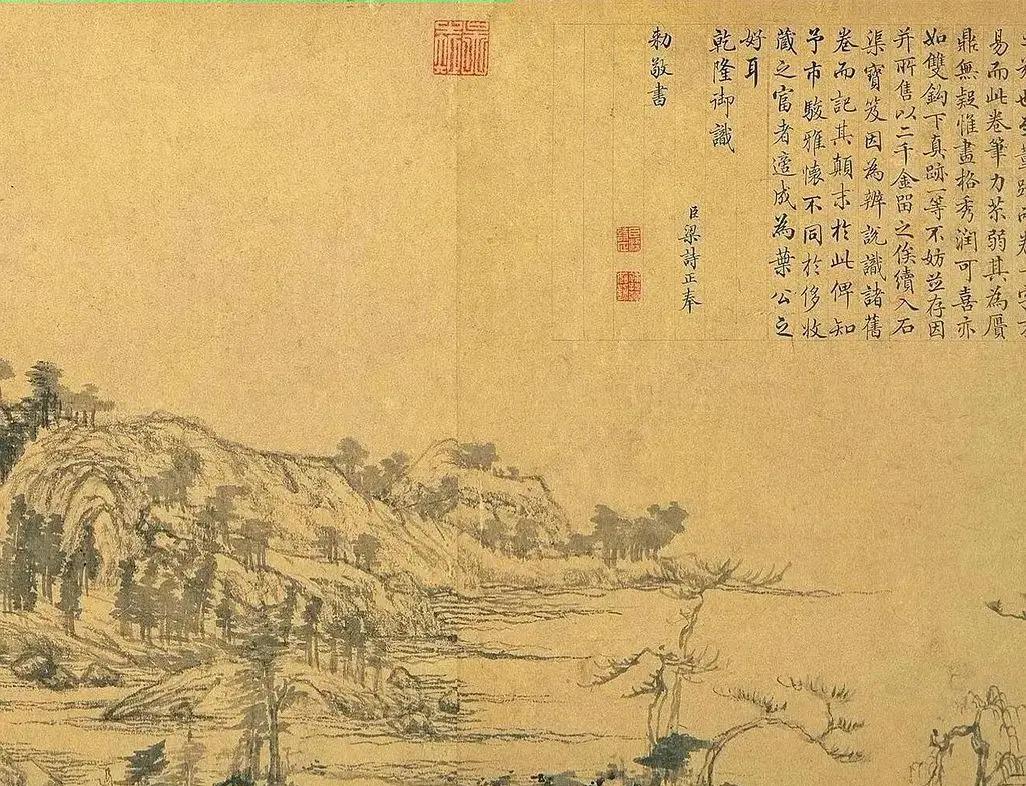 易而此卷筆力苶弱其為贋
鼎無疑惟畫格秀潤可喜亦
如雙鈎下真跡一等不妨並存因
并所售以二千金留之俟續入石
渠寶笈因為辨說識諸舊
卷而記其顛末於此俾知
予市駿雅懷不同於侈收
藏之富者適成為葉公之
好耳
乾隆御識
臣梁詩正奉
勅敬書